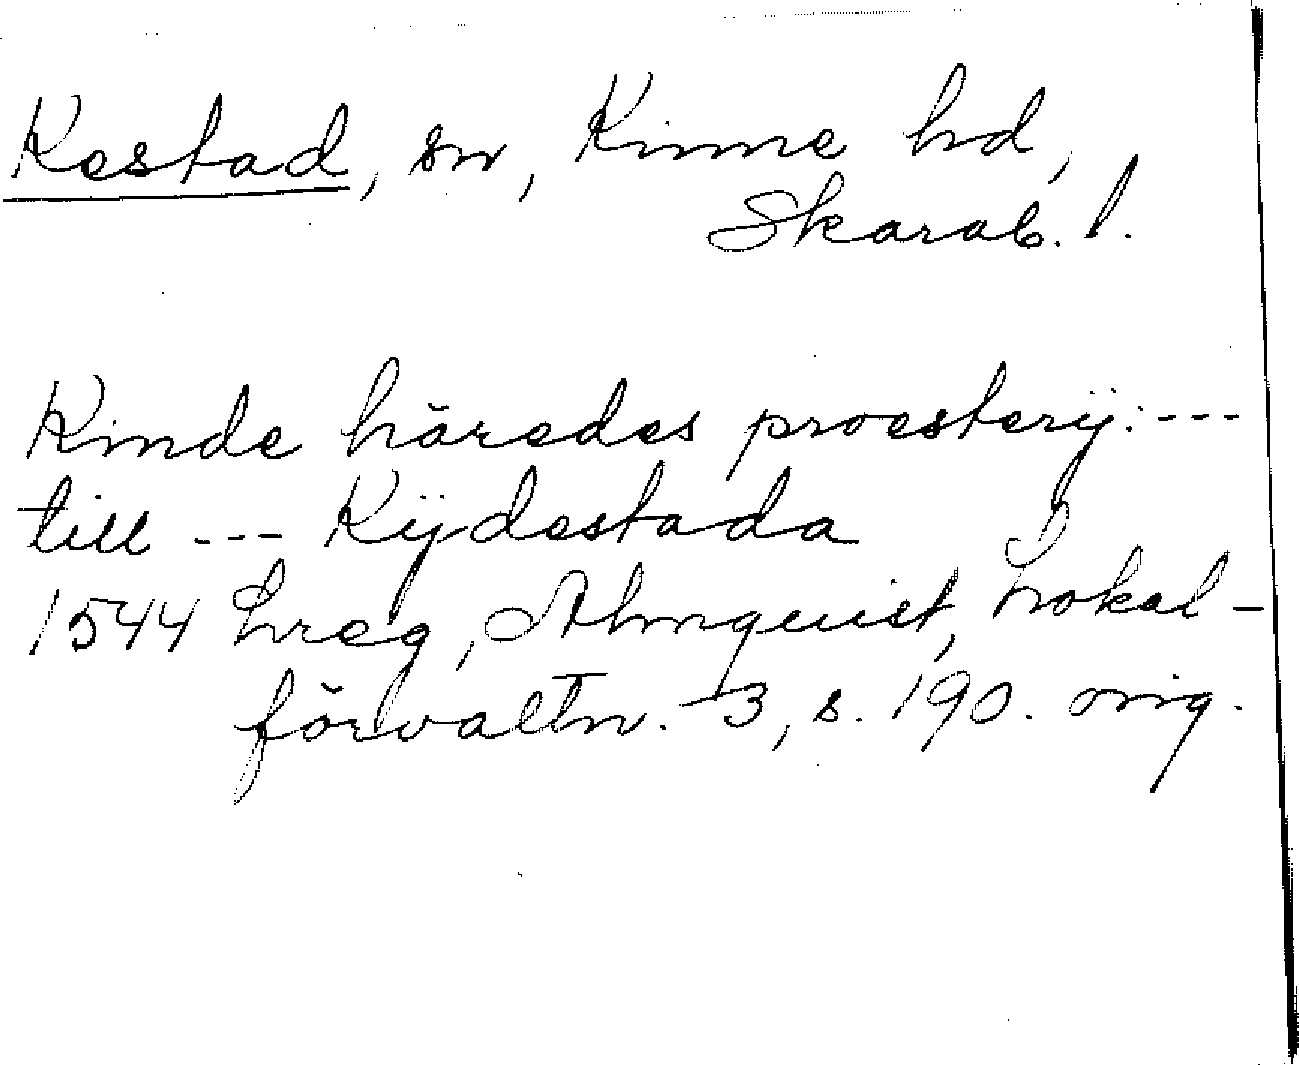 Kestad, sn, Kinne hd,
Skarab. l.
Kinde häredes proesterij: ---
till --- Kijdestada
1544 Lreg, Almquist, Lokal-
förvaltn. 3, s. 190. orig.